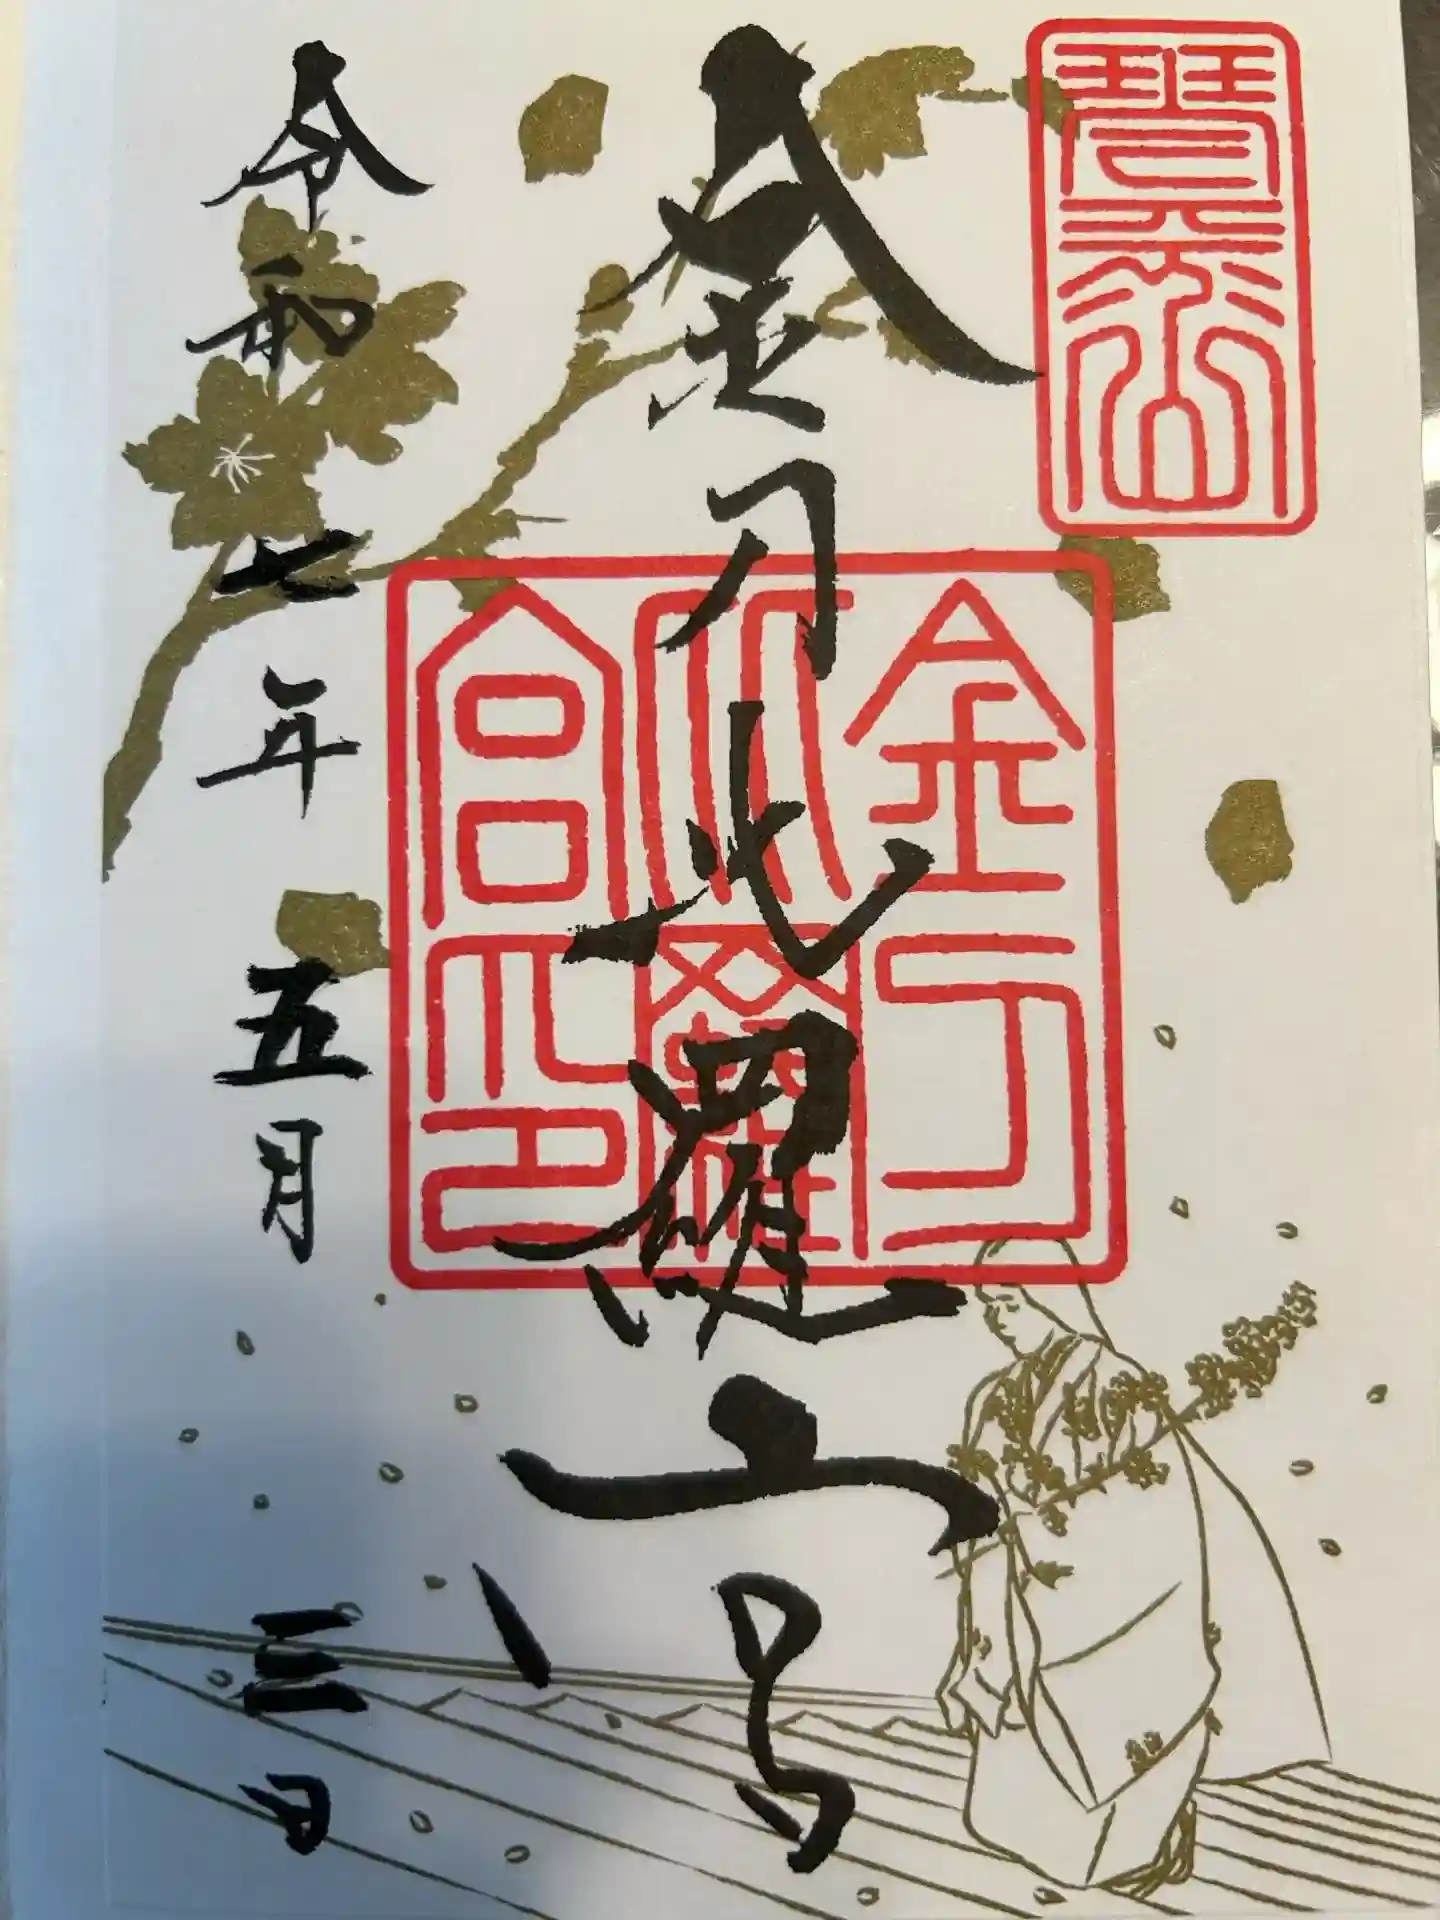 琴平山
金刀比羅宮
金刀比羅宮印
令和七年五月三日